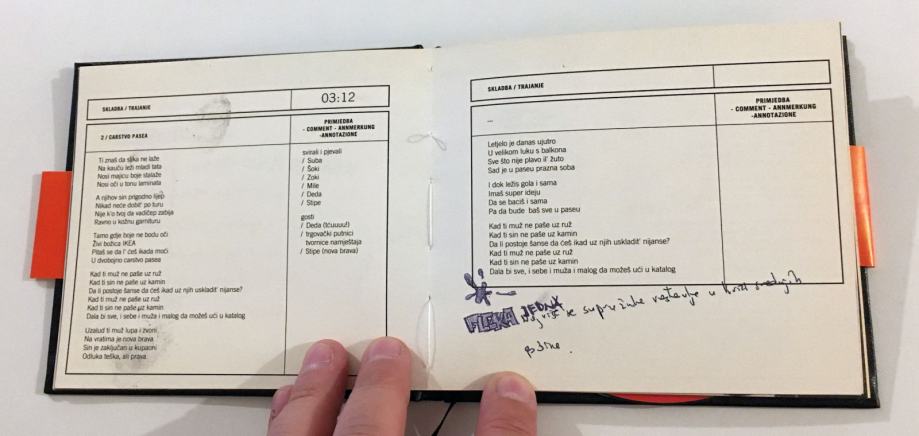 SKLADBA / TRAJANJE
03:12
2 / CARSTVO PASEA
PRIMJEDBA
- COMMENT - ANNMERKUNG
-ANNOTAZIONE
Ti znaš da slika ne laže
Na kauču leži mladi tata
Nosi majicu boje stalaže
Nosi oči u tonu laminata
A njihov sin prigodno lijep
Nikad neće dobit' po turu
Nije k'o tvoj da vadičep zabija
Ravno u kožnu garnituru
Tamo gdje boje ne bodu oči
Živi božica IKEA
Pitaš se da l' ćeš ikada moći
U dvobojno carstvo pasea
Kad ti muž ne paše uz ruž
Kad ti sin ne paše uz kamin
Da li postoje šanse da ćeš ikad uz njih uskladit' nijanse?
Kad ti muž ne paše uz ruž
Kad ti sin ne paše uz kamin
Dala bi sve, i sebe i muža i malog da možeš ući u katalog
Uzalud ti muž lupa i zvoni
Na vratima je nova brava
Sin je zaključan u kupaoni
Odluka teška, ali prava
svirali i pjevali
/ Suba
/ Šoki
/ Zoki
/ Mile
/ Deda
/ Stipe
gosti
/ Deda (tćuuuu!)
/ trgovački putnici
tvornice namještaja
/ Stipe (nova brava)
SKLADBA / TRAJANJE
...
PRIMJEDBA
- COMMENT - ANNMERKUNG
-ANNOTAZIONE
Letjelo je danas ujutro
U velikom luku s balkona
Sve što nije plavo il' žuto
Sad je u paseu prazna soba
I dok ležiš gola i sama
Imaš super ideju
Da se baciš i sama
Pa da bude baš sve u paseu
Kad ti muž ne paše uz ruž
Kad ti sin ne paše uz kamin
Da li postoje šanse da ćeš ikad uz njih uskladit' nijanse?
Kad ti muž ne paše uz ruž
Kad ti sin ne paše uz kamin
Dala bi sve, i sebe i muža i malog da možeš ući u katalog
FLEKA JEDNA
se supružnike u krizi srednjih